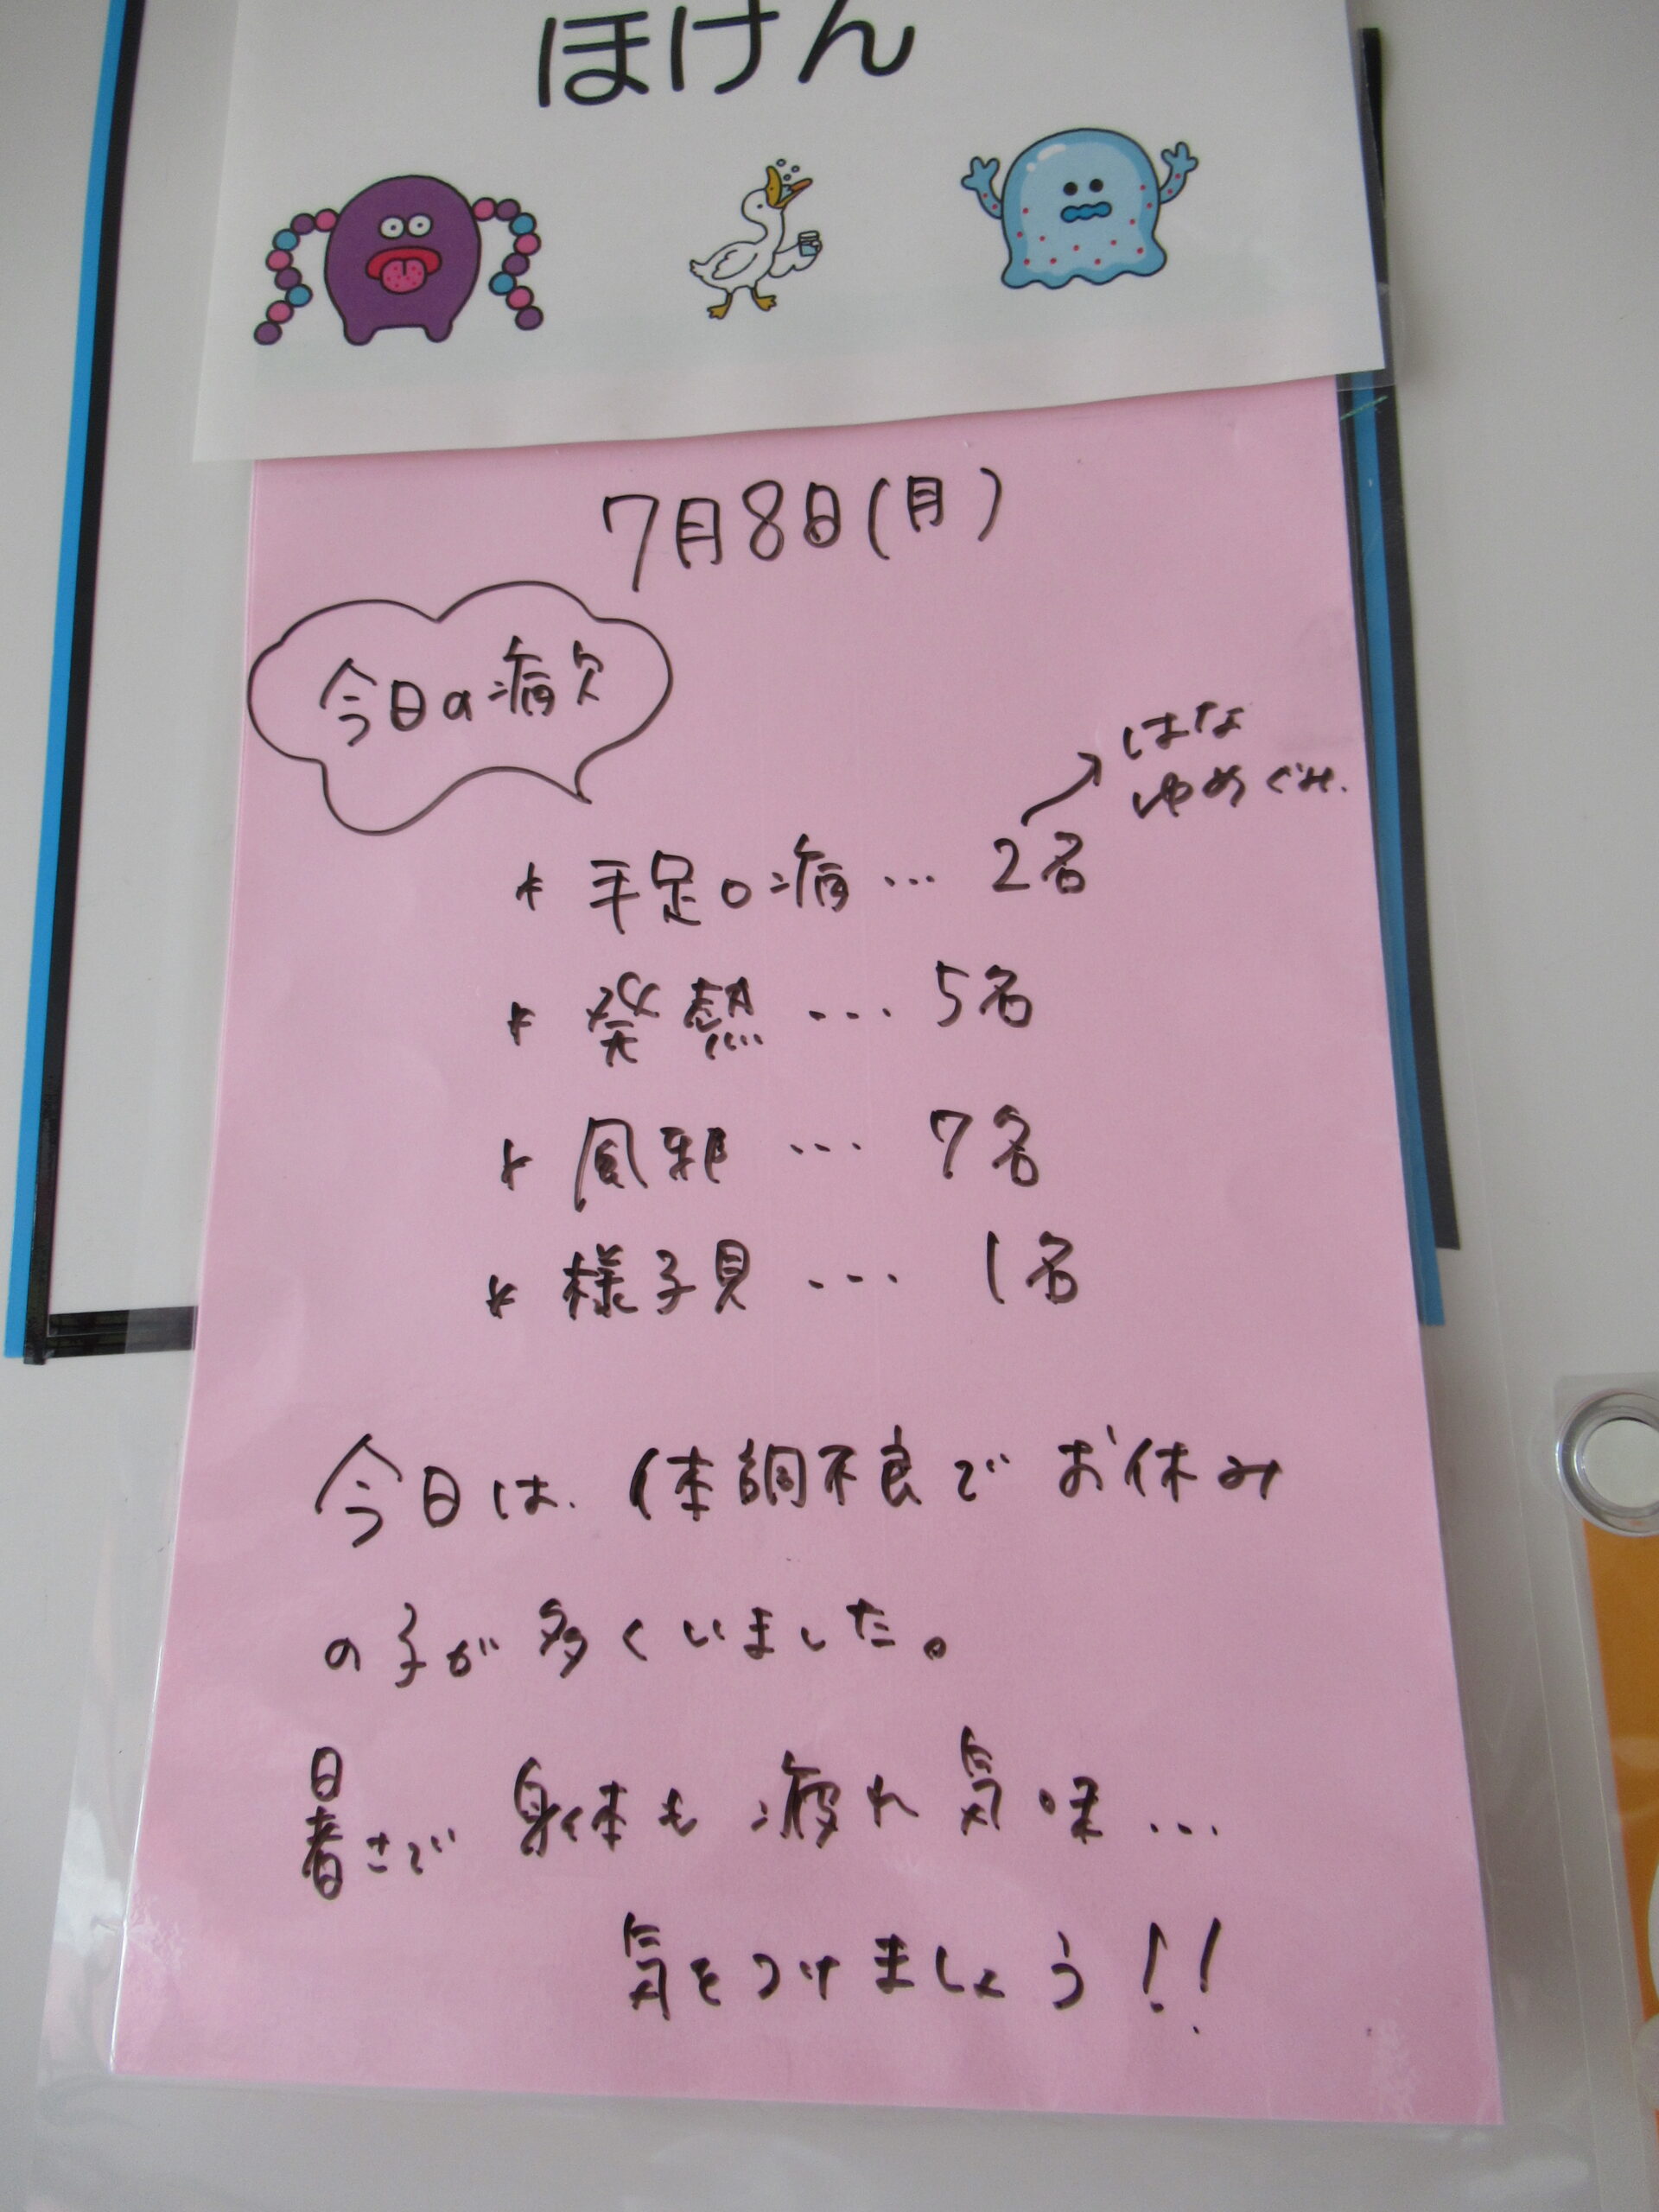 ほけん
7月8日(月)
今日の病欠
はな
ゆめぐみ.
* 手足口病 … 2名
* 発熱 … 5名
* 風邪 … 7名
* 様子見 … 1名
今日は、体調不良でお休み
の子が多くいました。
暑さで 身体も疲れ気味…
気をつけましょう!!